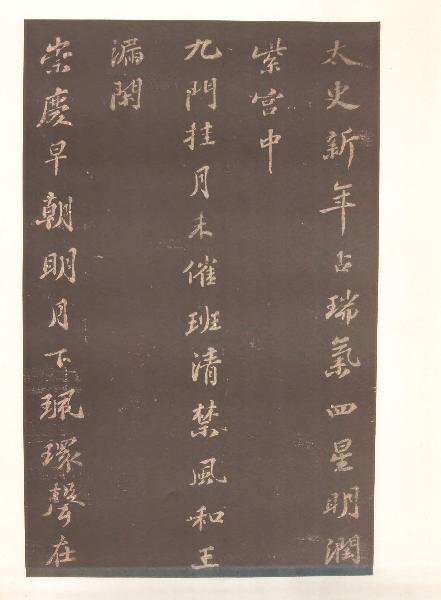 太史新年占瑞氣四星明潤
紫宮中
九門挂月未催班清禁風和玉
漏閑
崇慶早朝明月下珮環聲在